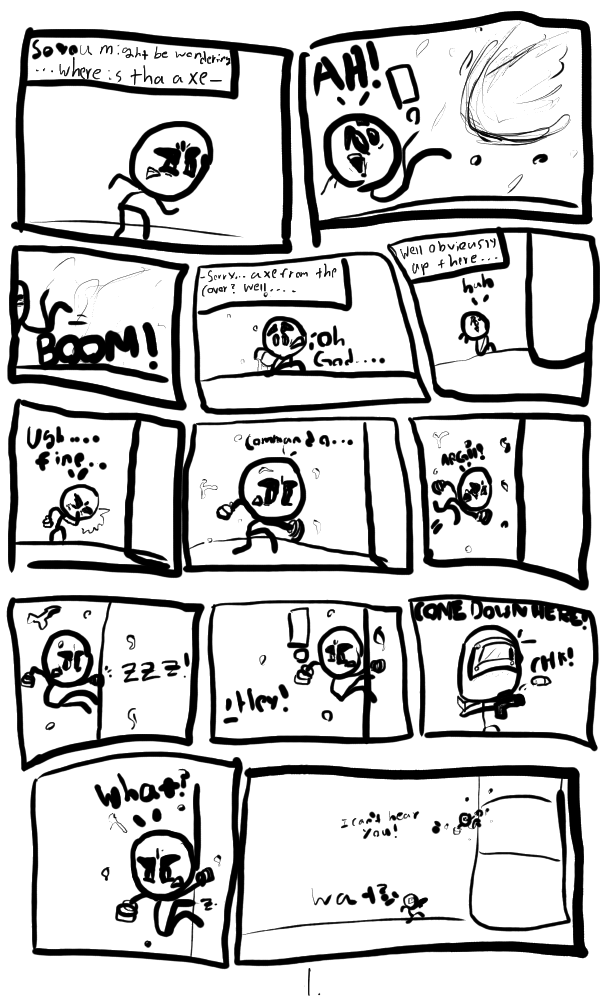 So you might be wondering
...where is tha axe-
AH!
BOOM!
-Sorry... axe from the
cover? Well.....
Oh
God....
Well obviously
up there...
huh
Ugh....
fine..
Command n...
ARGH!
ZZZ!
!Hey!
COME DOWN HERE!
CHK!
What?
z
I can't hear
you!
Wat?
1.